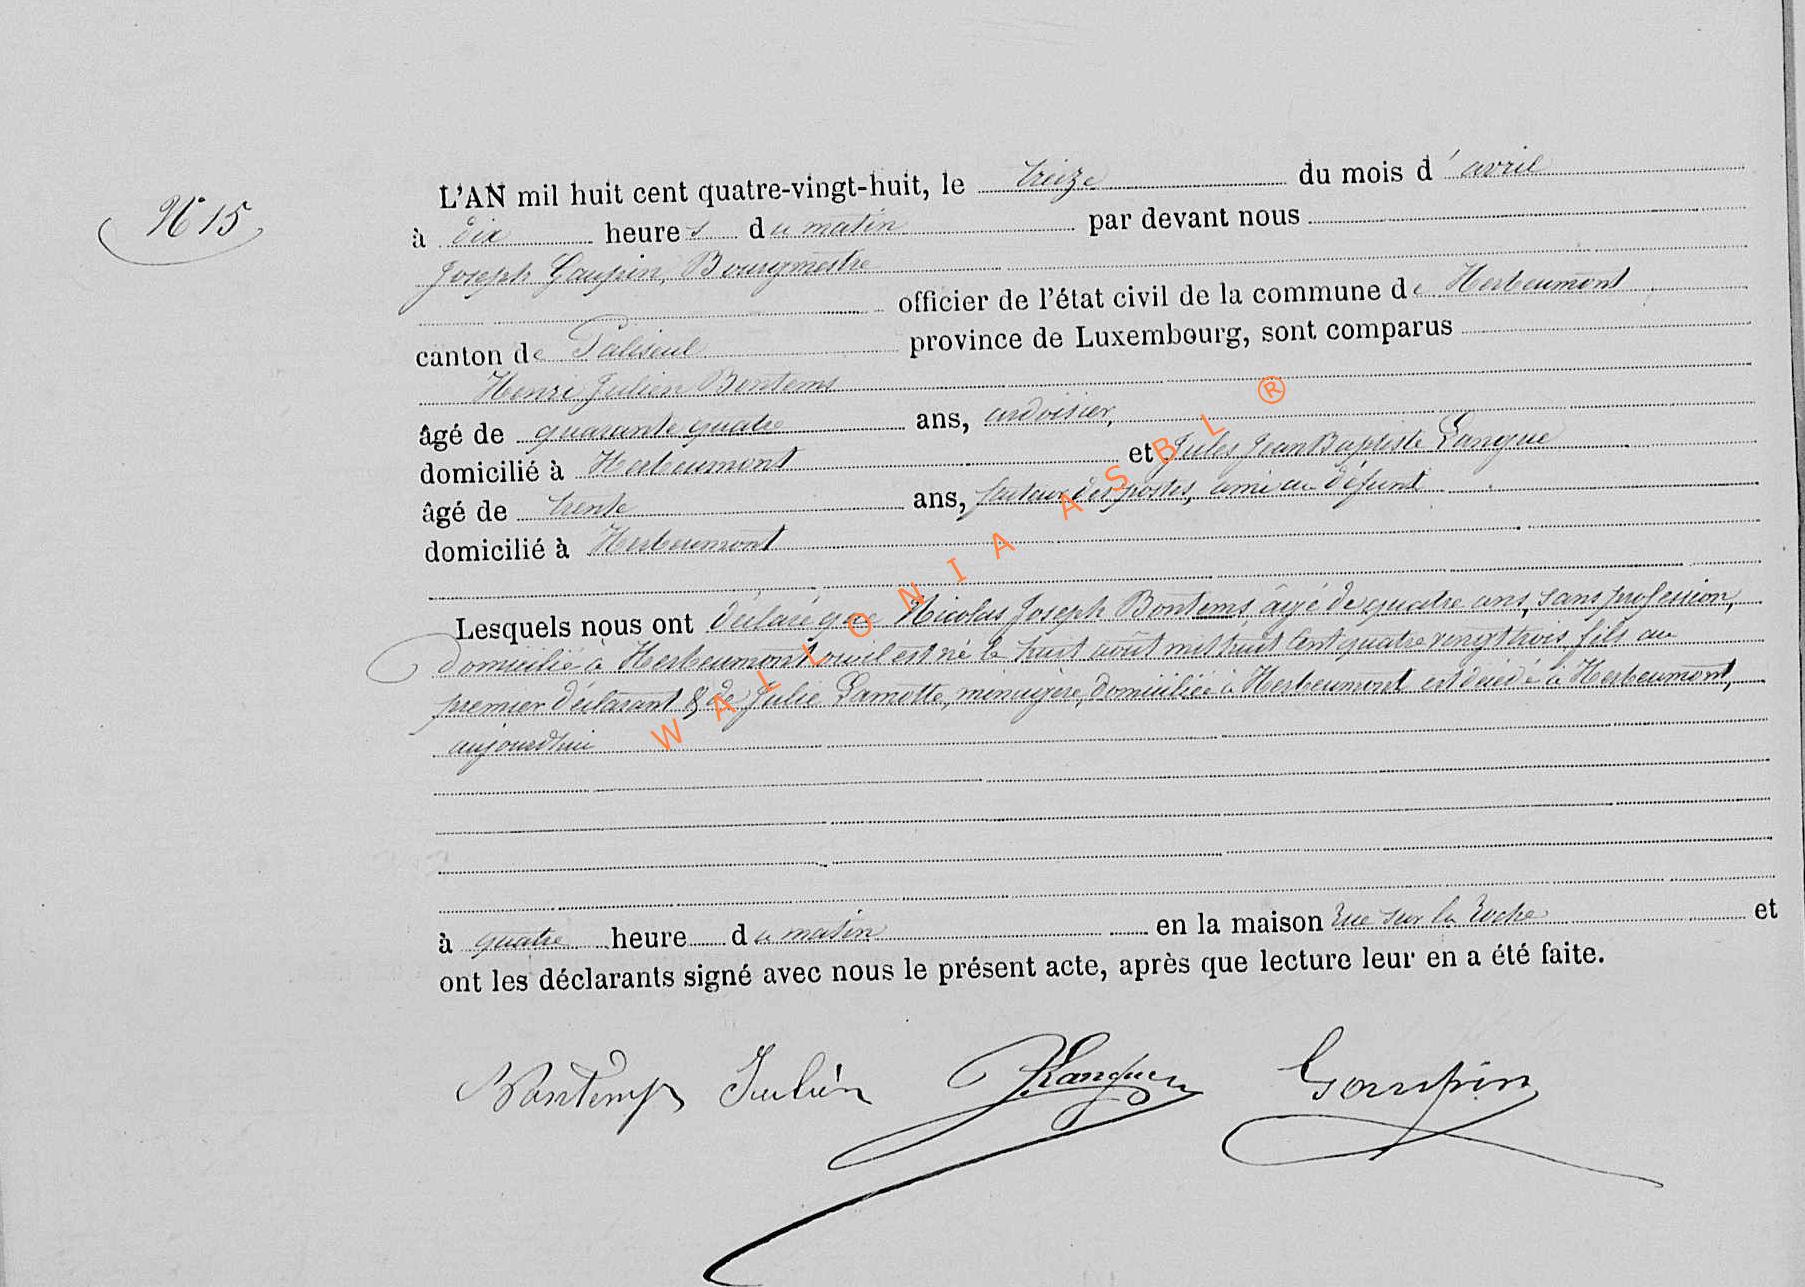 N° 15
L'AN mil huit cent quatre-vingt-huit, le treize du mois d'avril
à dix heures du matin par devant nous
Joseph Gaupin, Bourgmestre
officier de l'état civil de la commune de Herbeumont
canton de Paliseul province de Luxembourg, sont comparus
Henri Julien Bontems
âgé de quarante quatre ans, ardoisier,
domicilié à Herbeumont et Jules Jean Baptiste Langue
âgé de trente ans, facteur des postes, ami au défunt
domicilié à Herbeumont
Lesquels nous ont déclaré que Nicolas Joseph Bontems, âgé de quatre ans, sans profession,
domicilié à Herbeumont où il est né le huit août mil huit cent quatre vingt trois, fils au
premier déclarant & de Julie Lamotte, ménagère, domiciliée à Herbeumont est décédé à Herbeumont,
aujourdhui
à quatre heure du matin en la maison rue sur la Roche et
ont les déclarants signé avec nous le présent acte, après que lecture leur en a été faite.
Bontemps Julien JLangue Gaupin
WALLONIA ASBL ®